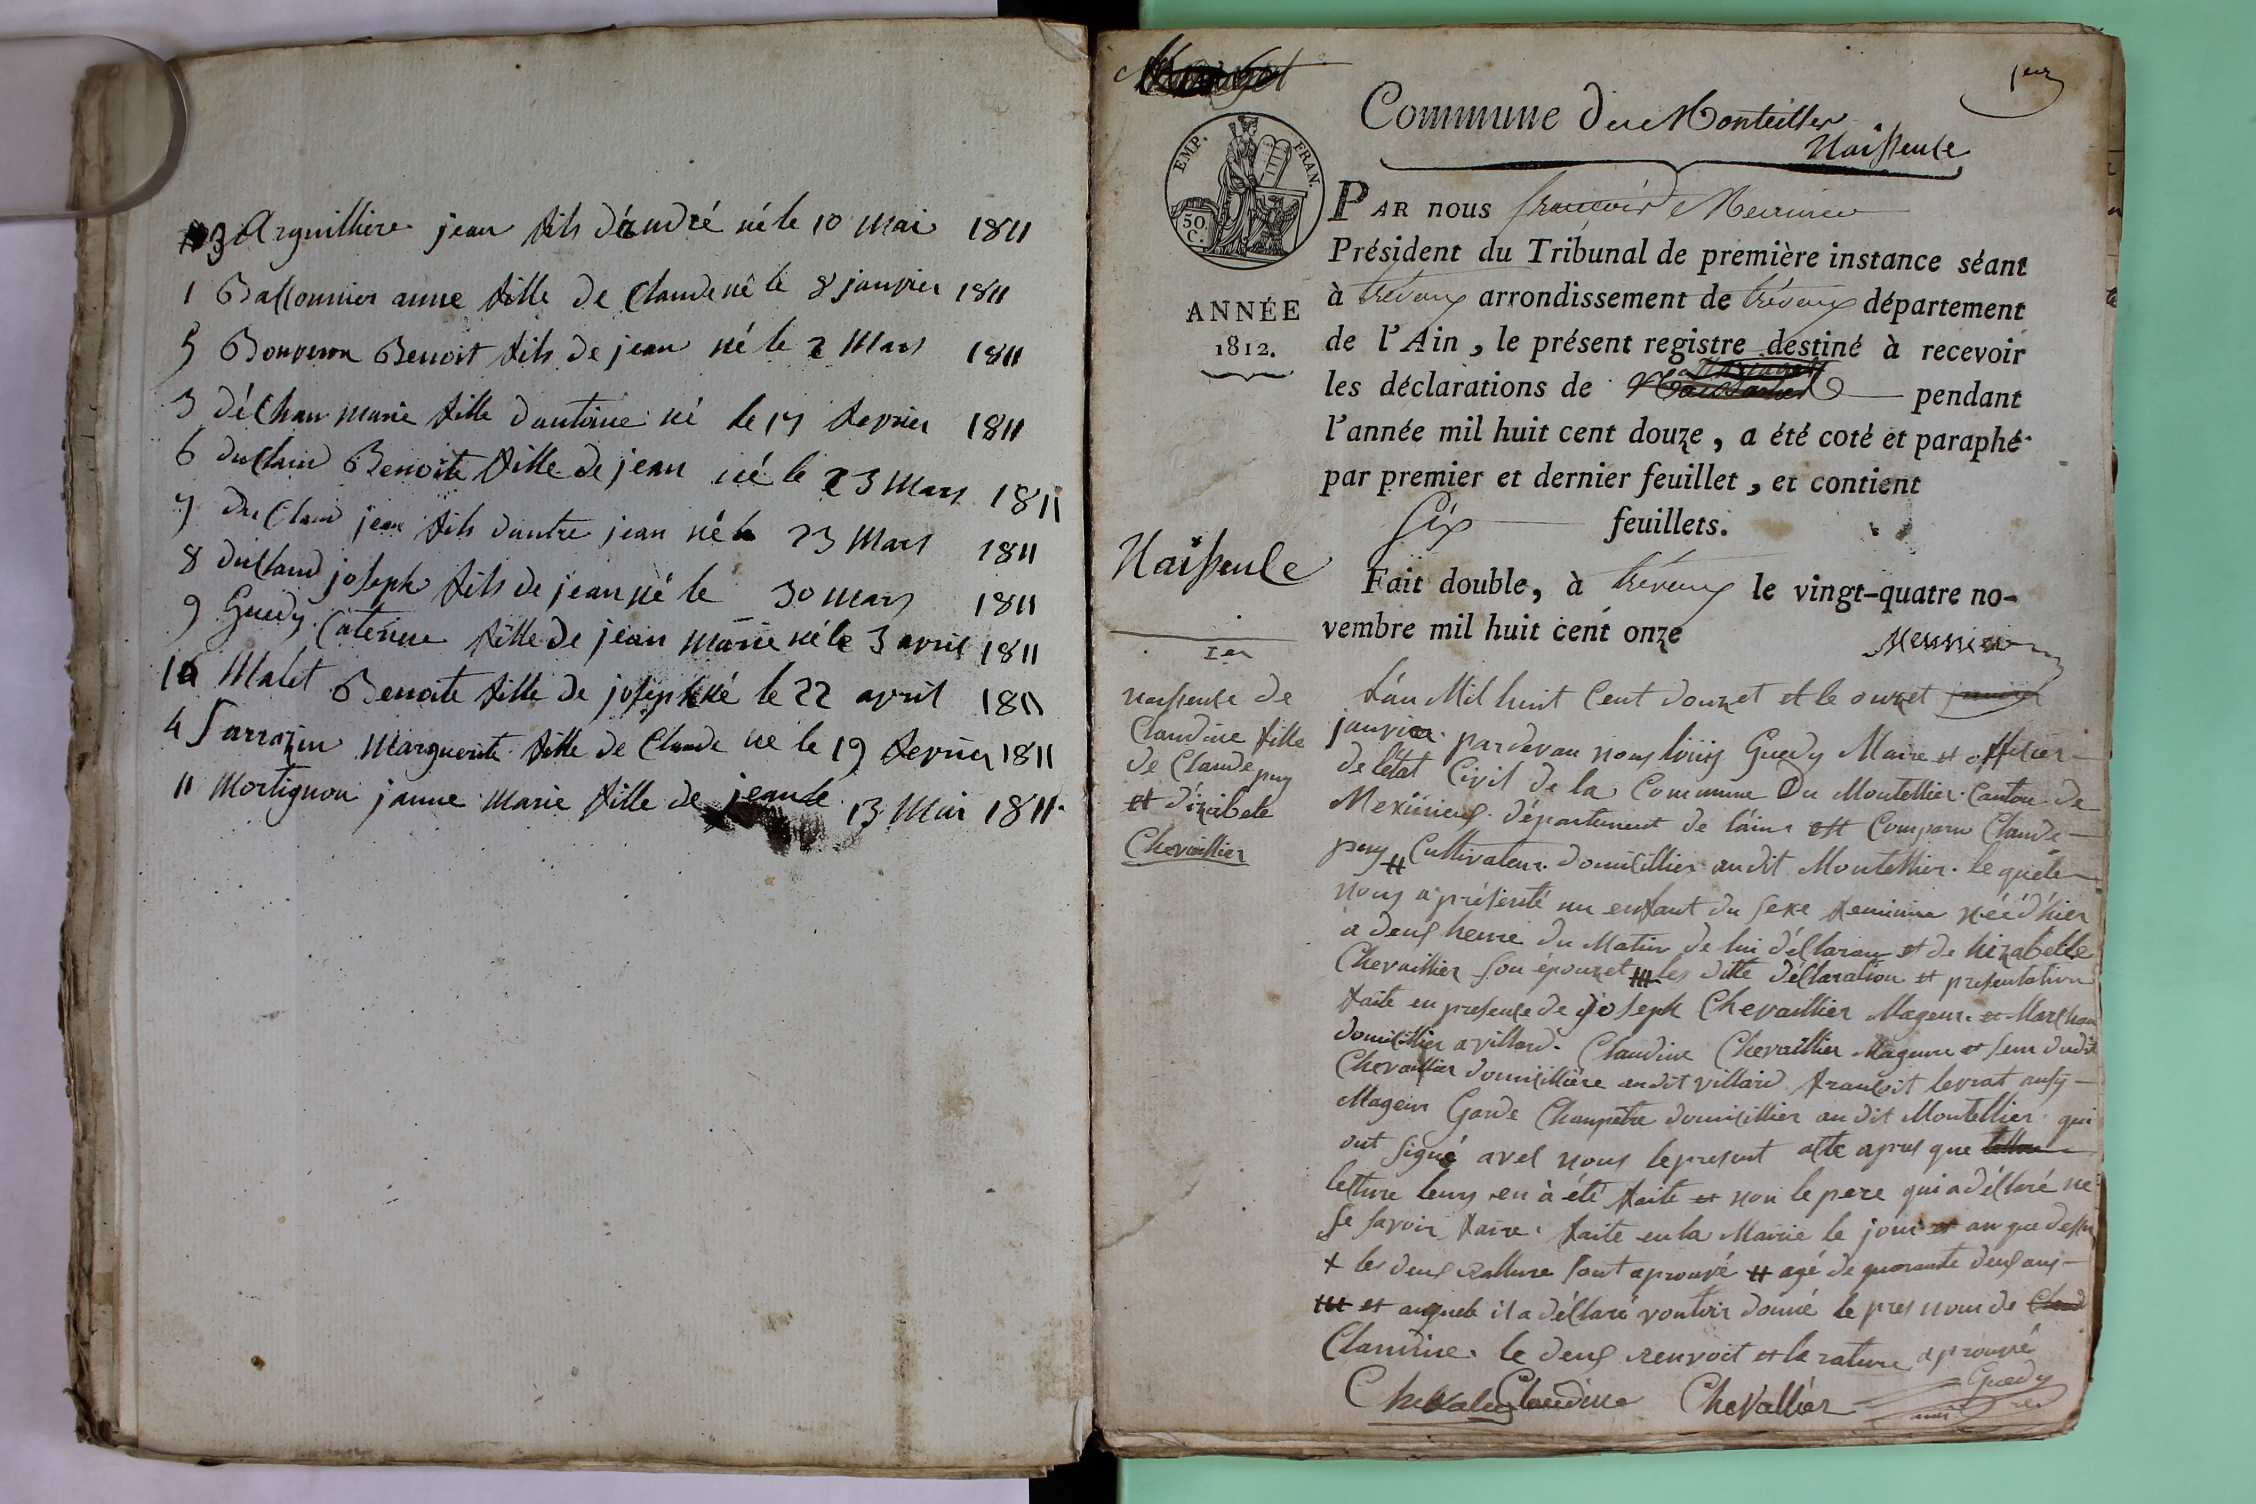 3 Arguilliere jean fils d'andré né le 10 mai 1811
1 Ballonnier anne fille de Claude né le 8 janvier 1811
5 Bouveron Benoit fils de jean né le 2 Mars 1811
3 déchan marie fille dantoine né le 17 fevrier 1811
6 duClaud Benoite fille de jean né le 23 Mars 1811
7 duClaud jean fils dautre jean né le 23 Mars 1811
8 duClaud joseph fils de jean né le 30 mars 1811
9 Guedy Caterine fille de jean marie né le 3 avril 1811
10 Malet Benoite fille de joseph né le 22 avril 1811
4 Sarrazin Marguerite fille de Claude ne le 19 fevrier 1811
11 Mortignon janne Marie fille de jean le 13 Mai 1811
1er
Commune du Montellier
Naissence
EMP. FRAN.
50. C.
ANNÉE
1812.
PAR nous françois Meunier
Président du Tribunal de première instance séant
à trévoux arrondissement de trévoux département
de l'Ain, le présent registre destiné à recevoir
les déclarations de pendant
l'année mil huit cent douze, a été coté et paraphé
par premier et dernier feuillet, et contient
Six feuillets.
Fait double, à trévoux le vingt-quatre no-
vembre mil huit cent onze
Meunier
Naissence
1er
naissence de
Claudine fille
de Claude puy
et d'izabele
Chevaillier
L'an Mil huit Cent douzet et le onzet
janvier pardevan nous louis Guedy Maire et officier
de letat Civil de la Commune Du Montellier Canton de
Meximieux département de l'ain est Comparu Claude
puy # Cultivateur domicillier audit Montellier lequele
nous a présenté un enfant du sexe feminine néé d'hier
a deux heure du Matin de lui déclaran et de hizabelle
Chevaillier son épouzet les ditte déclaration et presentation
faite en presence de joseph Chevaillier Mageur et Marchan
domicillier a villard. Claudine Chevaillier Mageure et seur dudit
Chevaillier domicilliere audit villard françoit levrat ausy
Mageur Garde Champêtre domicillier audit Montellier qui
ont signé avec nous le present acte apres que
lecture leurs en à été faite et non le pere qui a déclaré ne
se savoir faire. faite en la Mairie le jour et an que dessu
+ les deux rallure sont aprouvé # agé de quarante deux ans
et auquele il a déclaré vouloir donné le pres nom de
Claudine. le deux renvoit et la rature aprouvé
Chevalier Claudine Chevallier Guedy